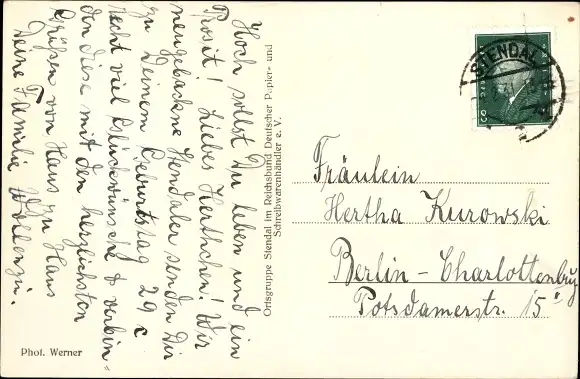 Hoch sollst Du leben und ein
Prosit! Liebes Herthchen! Wir
neugebackne Stendaler senden Dir
zu Deinem Geburtstag 29 c
recht viel Glückwünsche & verbin=
den diese mit den herzlichsten
Grüßen von Haus zu Haus
Deine Familie
Ortsgruppe Stendal im Reichsbund Deutscher Papier- und
Schreibwarenhändler e. V.
Phot. Werner
STENDAL
Fräulein
Hertha Kurowski
Berlin - Charlottenburg
Potsdamerstr. 15